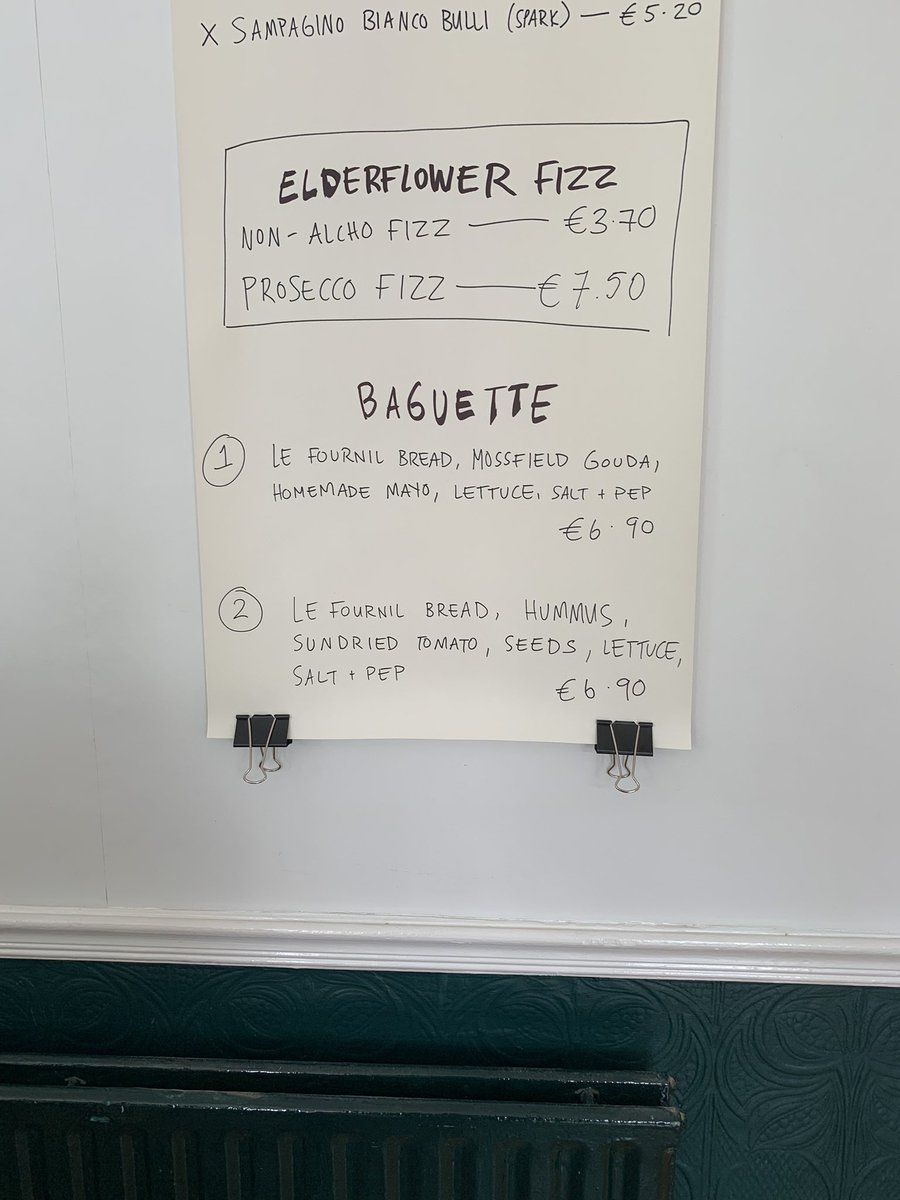 X SAMPAGINO BIANCO BULLI (SPARK) — €5.20
ELDERFLOWER FIZZ
NON-ALCHO FIZZ — €3.70
PROSECCO FIZZ — €7.50
BAGUETTE
1 LE FOURNIL BREAD, MOSSFIELD GOUDA,
HOMEMADE MAYO, LETTUCE, SALT + PEP
€6.90
2 LE FOURNIL BREAD, HUMMUS,
SUNDRIED TOMATO, SEEDS, LETTUCE,
SALT + PEP
€6.90